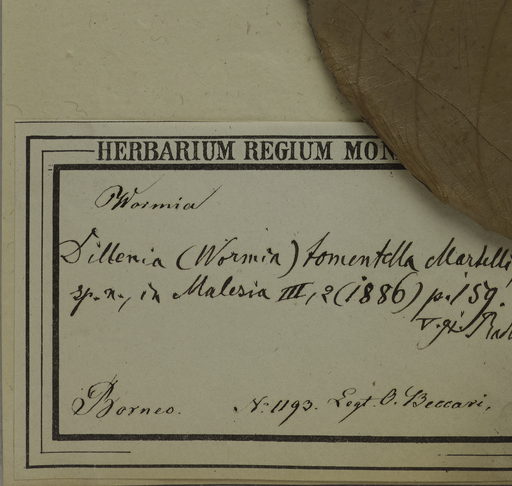 HERBARIUM REGIUM MON
Wormia
Dillenia (Wormia) tomentella Martelli
sp. n., in Malesia III, 2 (1886) p. 159.
Borneo. No. 1193. Legt. O. Beccari.